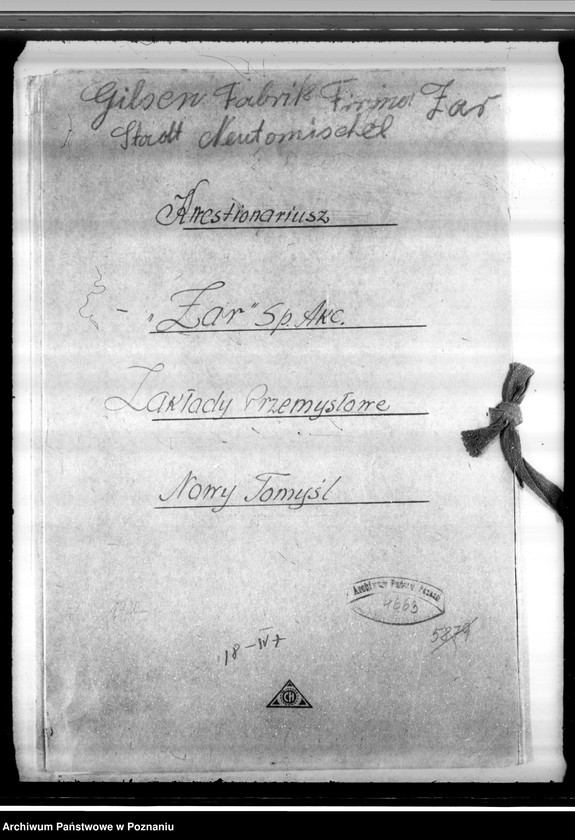 Gilsen Fabrik Firma Żar
Stadt Neutomischel
Kwestionariusz
- "Żar" Sp. Akc.
Zakłady Przemysłowe
Nowy Tomyśl
Archiwum Państw. Poznań
4663
5874
18-IV-7
CH
Archiwum Państwowe w Poznaniu